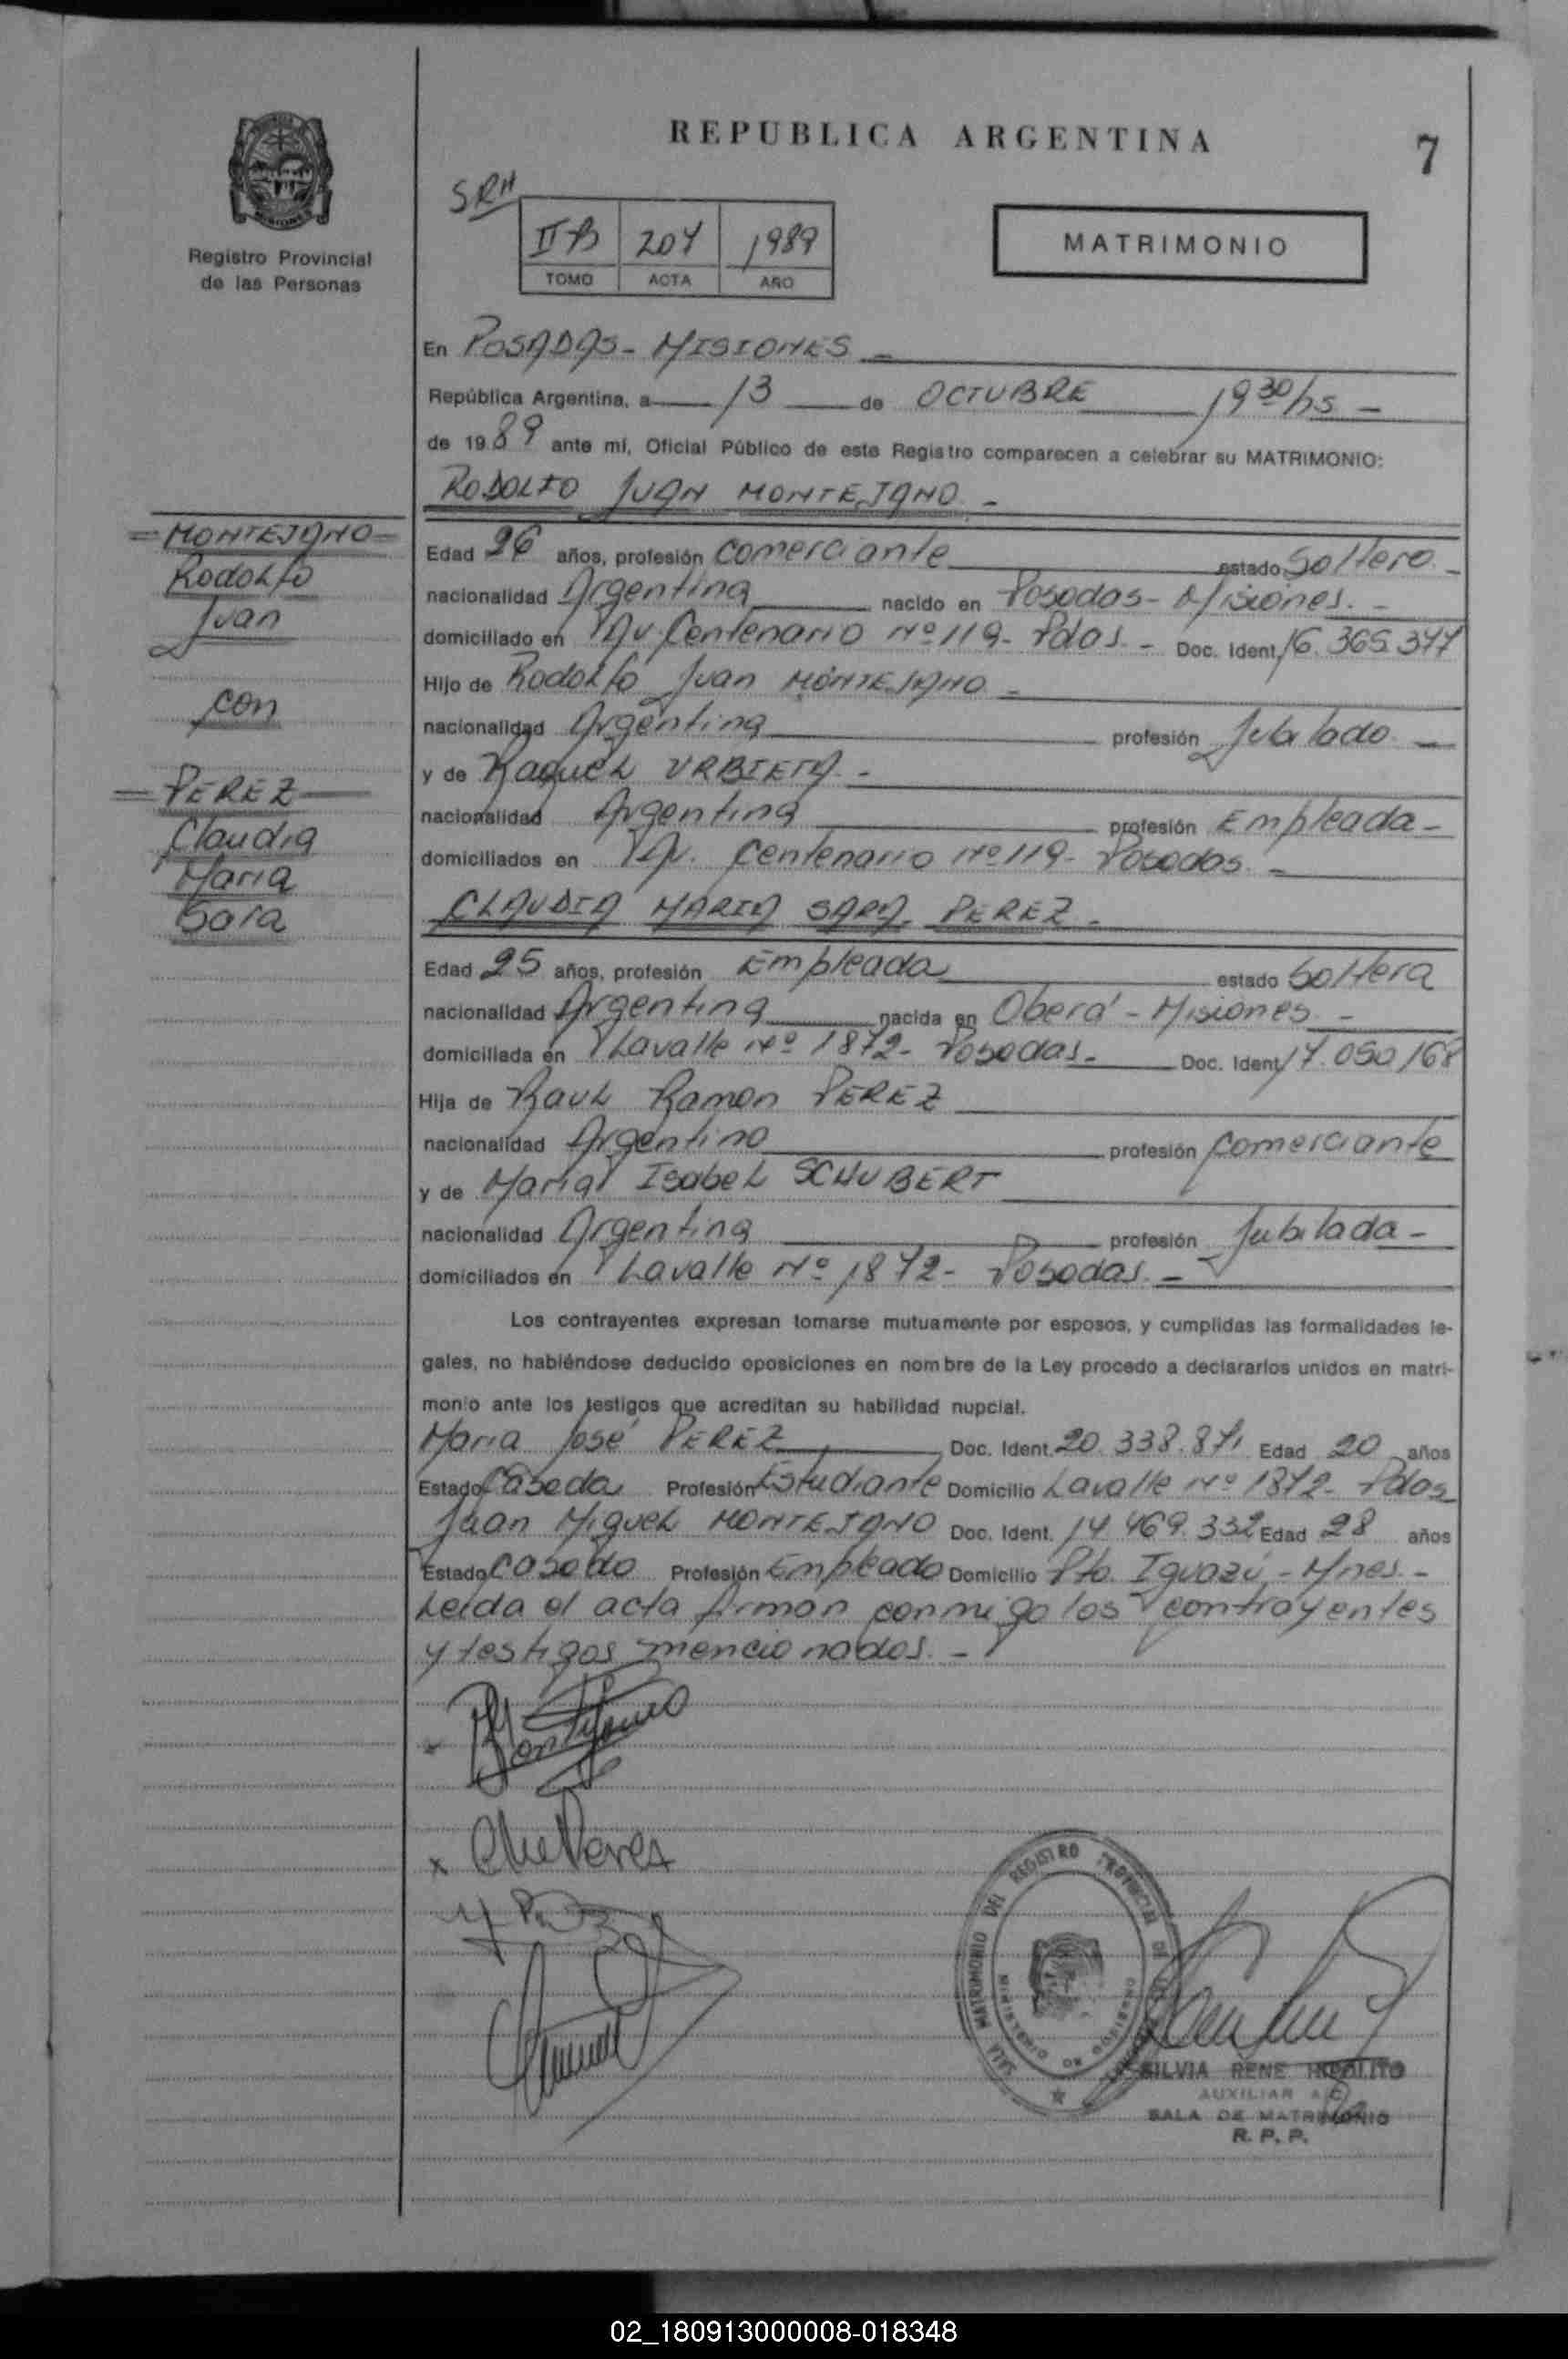 REPUBLICA ARGENTINA
7
Registro Provincial
de las Personas
SRH
II B 207 1989
TOMO ACTA AÑO
MATRIMONIO
En POSADAS - MISIONES -
República Argentina, a 13 de OCTUBRE 19 30/hs -
de 1989 ante mí, Oficial Público de este Registro comparecen a celebrar su MATRIMONIO:
RODOLFO JUAN MONTEJANO. -
= MONTEJANO =
Rodolfo
Juan
con
= PEREZ =
Claudia
Maria
Sara
Edad 26 años, profesión comerciante estado Soltero. -
nacionalidad Argentina nacido en Posadas - Misiones. -
domiciliado en Av. Centenario Nº 119 - Pdas. - Doc. Ident. 16.365.377
Hijo de Rodolfo Juan MONTEJANO -
nacionalidad Argentina profesión Jubilado. -
y de Raquel URBIETA. -
nacionalidad Argentina profesión Empleada -
domiciliados en Av. Centenario Nº 119 - Posadas. -
CLAUDIA MARIA SARA PEREZ -
Edad 25 años, profesión Empleada estado Soltera
nacionalidad Argentina nacida en Oberá - Misiones. -
domiciliada en Lavalle Nº 1872 - Posadas. - Doc. Ident. 17.050.168
Hija de Raul Ramon PEREZ
nacionalidad Argentino profesión comerciante
y de Maria Isabel SCHUBERT
nacionalidad Argentina profesión Jubilada -
domiciliados en Lavalle Nº 1872 - Posadas. -
Los contrayentes expresan tomarse mutuamente por esposos, y cumplidas las formalidades le-
gales, no habiéndose deducido oposiciones en nombre de la Ley procedo a declararlos unidos en matri-
monio ante los testigos que acreditan su habilidad nupcial.
Maria José PEREZ Doc. Ident. 20.338.871 Edad 20 años
Estado Casada Profesión Estudiante Domicilio Lavalle Nº 1872 - Pdas
Juan Miguel MONTEJANO Doc. Ident. 14.469.332 Edad 28 años
Estado Casado Profesión Empleado Domicilio Pto. Iguazú - Mnes. -
Leida el acta firman conmigo los contrayentes
y testigos mencionados. -
SALA MATRIMONIO DEL REGISTRO PROVINCIAL DE
SILVIA RENE HIPOLITO
AUXILIAR
SALA DE MATRIMONIO
R. P. P.
02_180913000008-018348